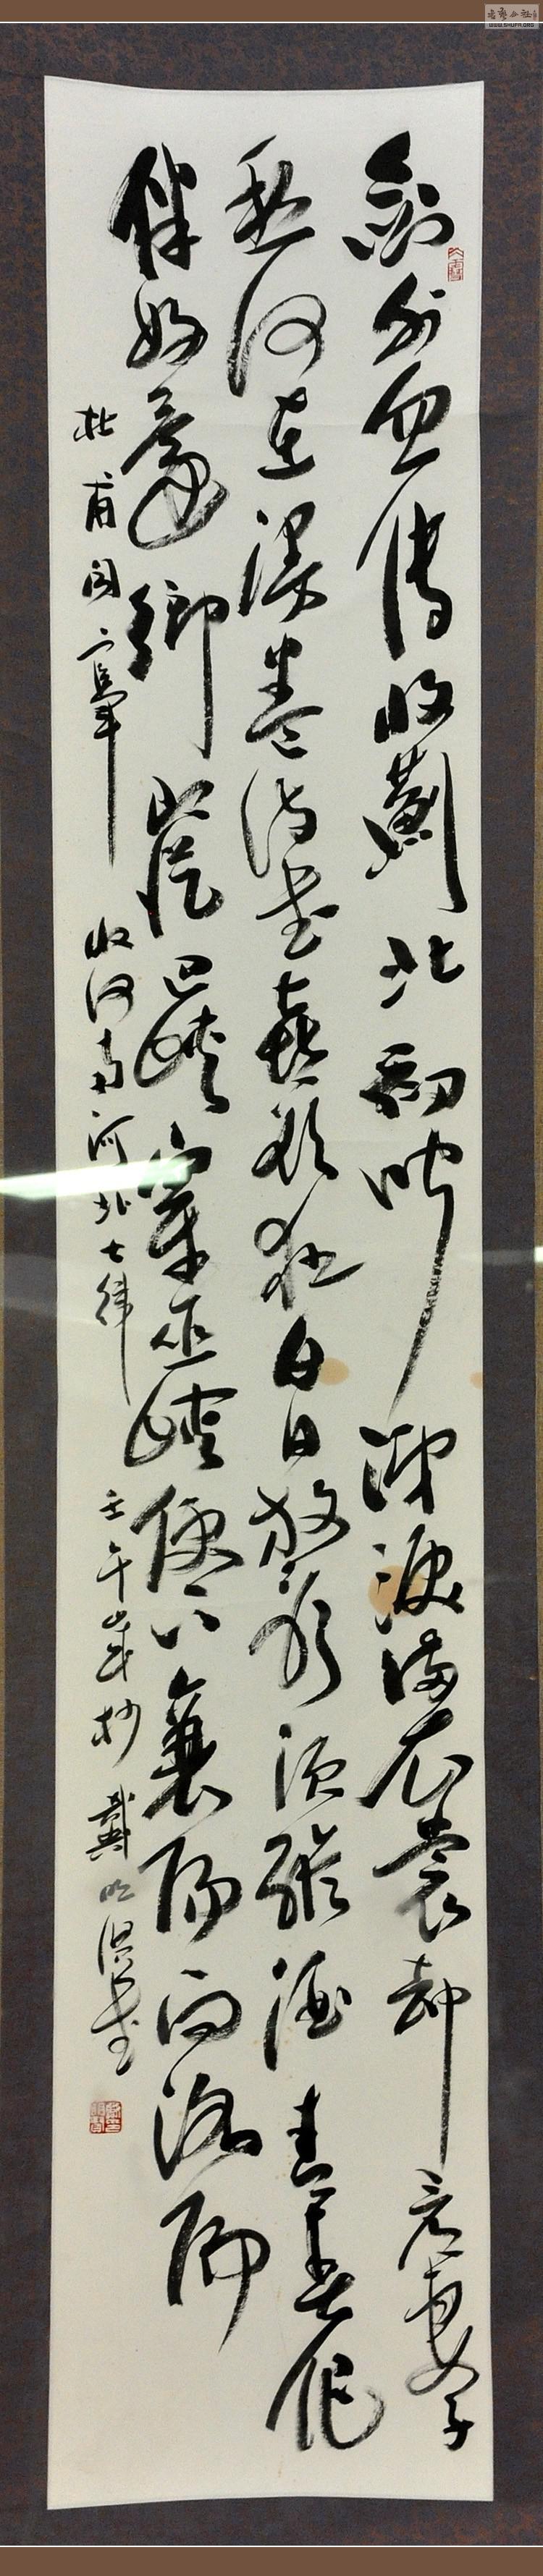 劍外忽傳收薊北初聞涕淚滿衣裳却看妻子
愁何在漫卷詩書喜欲狂白日放歌須縱酒青春作
伴好還鄉即從巴峽穿巫峽便下襄陽向洛陽
杜甫聞官軍收河南河北七律 壬午歲杪 戴明賢書